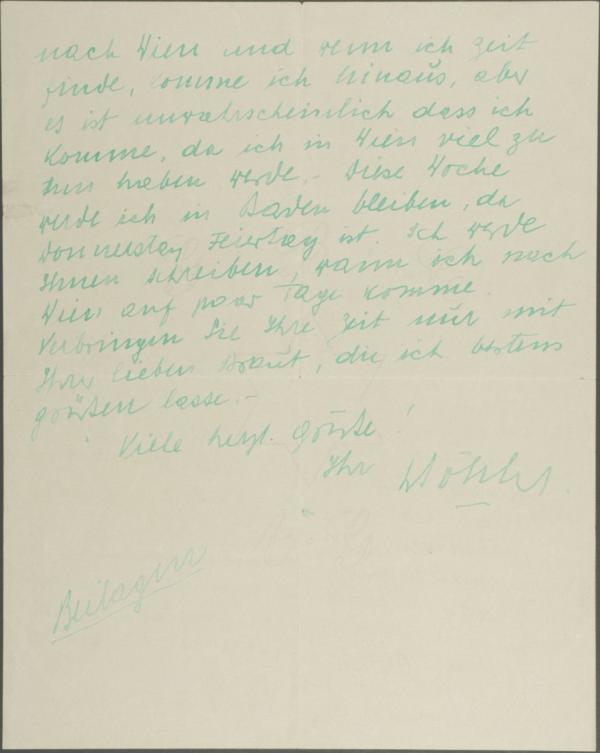 nach Wien und wenn ich Zeit
finde, komme ich hinaus, aber
es ist unwahrscheinlich dass ich
komme, da ich in Wien viel zu
tun haben werde. - Diese Woche
werde ich in Baden bleiben, da
Donnerstag Feiertag ist. Ich werde
Ihnen schreiben, wann ich nach
Wien auf paar Tage komme.
Verbringen Sie Ihre Zeit nur mit
Ihrer lieben Braut, die ich bestens
grüssen lasse. -
Viele herzl. Grüsse!
Ihr
Beilagen